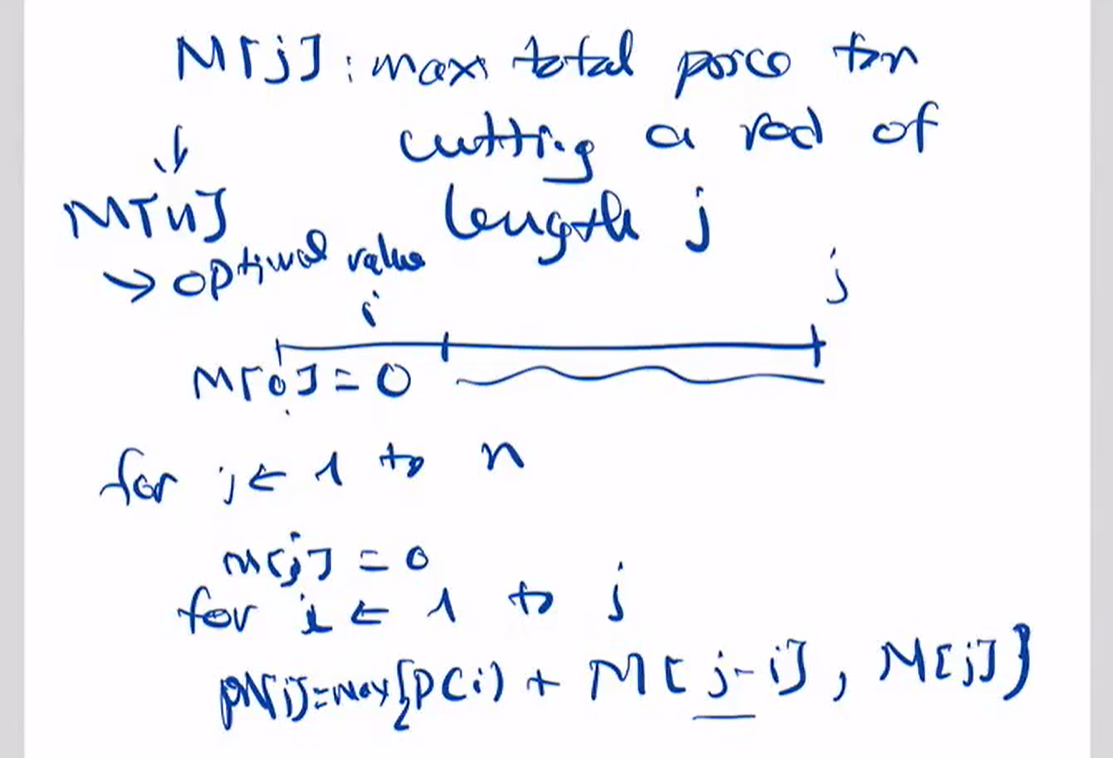 M[j] : max total price for
cutting a rod of
↓
M[n]
length j
→ optimal value
i
j
M[0] = 0
for j ← 1 to n
M[j] = 0
for i ← 1 to j
M[j] = max{p(i) + M[j-i], M[j]}